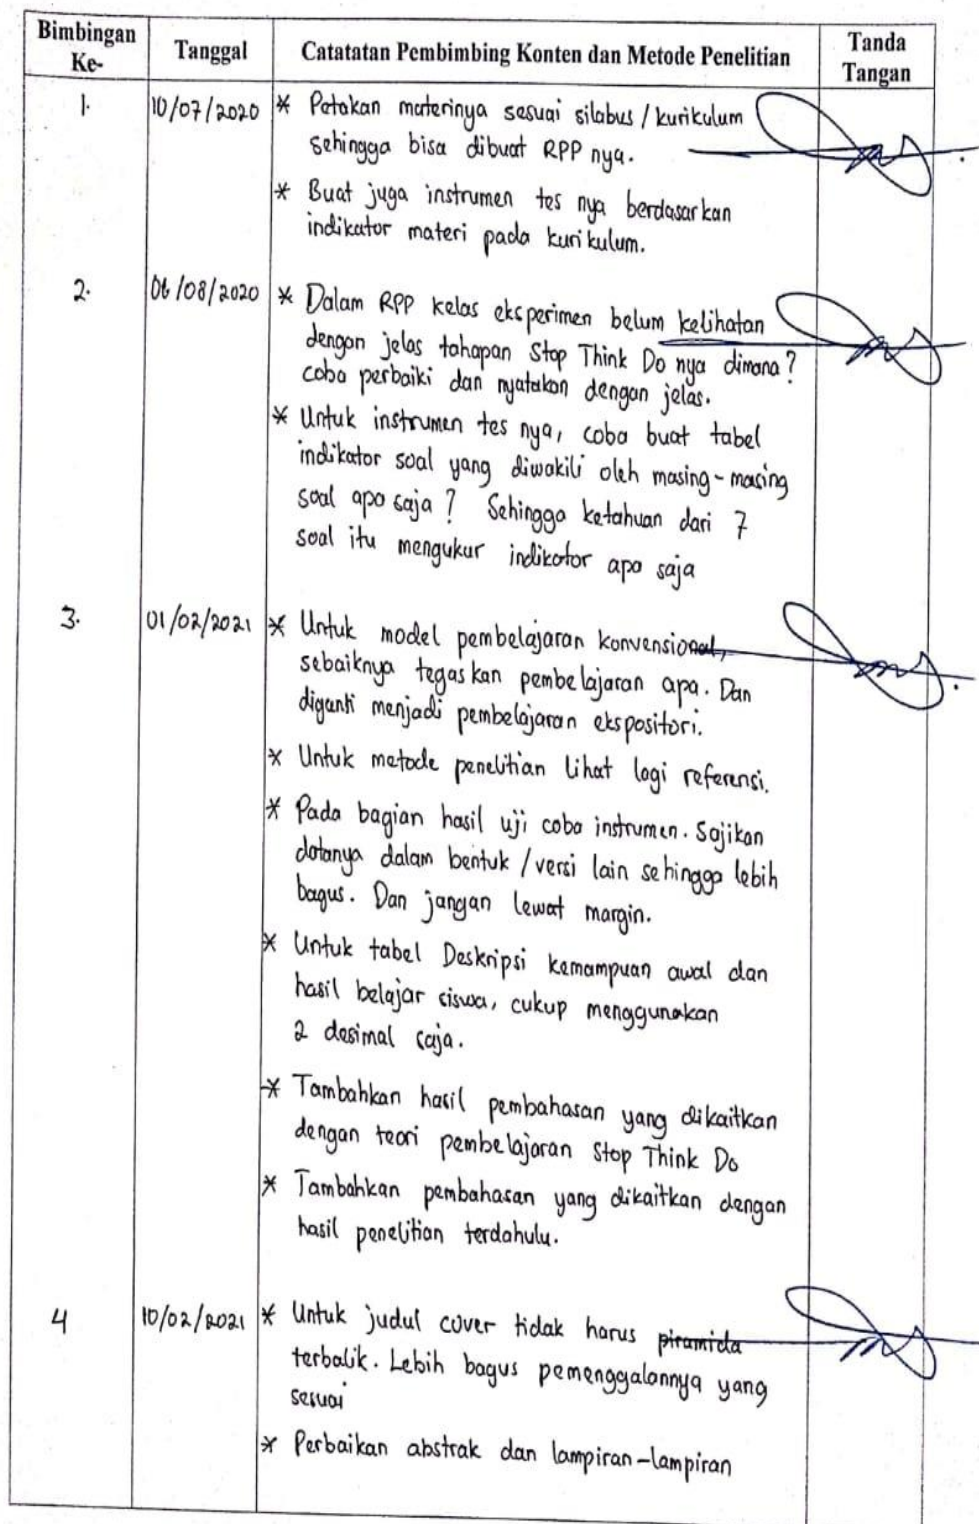 Bimbingan Ke- Tanggal Catatatan Pembimbing Konten dan Metode Penelitian Tanda Tangan
1. 10/07/2020 * Patakan materinya sesuai silabus / kurikulum
sehingga bisa dibuat RPP nya.
* Buat juga instrumen tes nya berdasarkan
indikator materi pada kurikulum.
2. 06/08/2020 * Dalam RPP kelas eksperimen belum kelihatan
dengan jelas tahapan Stop Think Do nya dimana?
coba perbaiki dan nyatakan dengan jelas.
* Untuk instrumen tes nya, coba buat tabel
indikator soal yang diwakili oleh masing-masing
soal apa saja? Sehingga ketahuan dari 7
soal itu mengukur indikator apa saja
3. 01/02/2021 * Untuk model pembelajaran konvensional,
sebaiknya tegaskan pembelajaran apa. Dan
diganti menjadi pembelajaran ekspositori.
* Untuk metode penelitian lihat lagi referensi.
* Pada bagian hasil uji coba instrumen. Sajikan
datanya dalam bentuk / versi lain sehingga lebih
bagus. Dan jangan lewat margin.
* Untuk tabel Deskripsi kemampuan awal dan
hasil belajar siswa, cukup menggunakan
2 desimal saja.
* Tambahkan hasil pembahasan yang dikaitkan
dengan teori pembelajaran Stop Think Do
* Tambahkan pembahasan yang dikaitkan dengan
hasil penelitian terdahulu.
4 10/02/2021 * Untuk judul cover tidak harus piramida
terbalik. Lebih bagus pemenggalannya yang
sesuai
* Perbaikan abstrak dan lampiran-lampiran